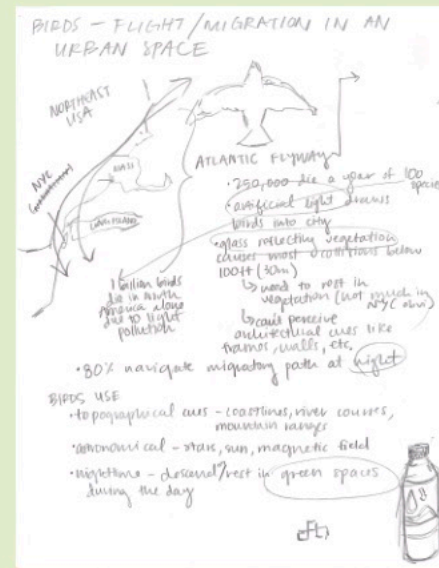 BIRDS – FLIGHT/MIGRATION IN AN
URBAN SPACE
NORTHEAST
USA
NYC
MASS
LONG ISLAND
ATLANTIC FLYWAY
• 250,000 die a year of 100
species
• artificial light draws
birds into city
• glass reflecting vegetation
causes most collisions below
100ft (30m)
↳ need to rest in
vegetation (not much in
NY
↳ can't perceive
architectural cues like
frames, walls, etc.
1 billion birds
die in North
America alone
due to light
pollution
• 80% navigate migratory path at night
BIRDS USE
• topographical cues – coastlines, river courses,
mountain ranges
• astronomical – stars, sun, magnetic field
• nighttime – descend/rest in green spaces
during the day